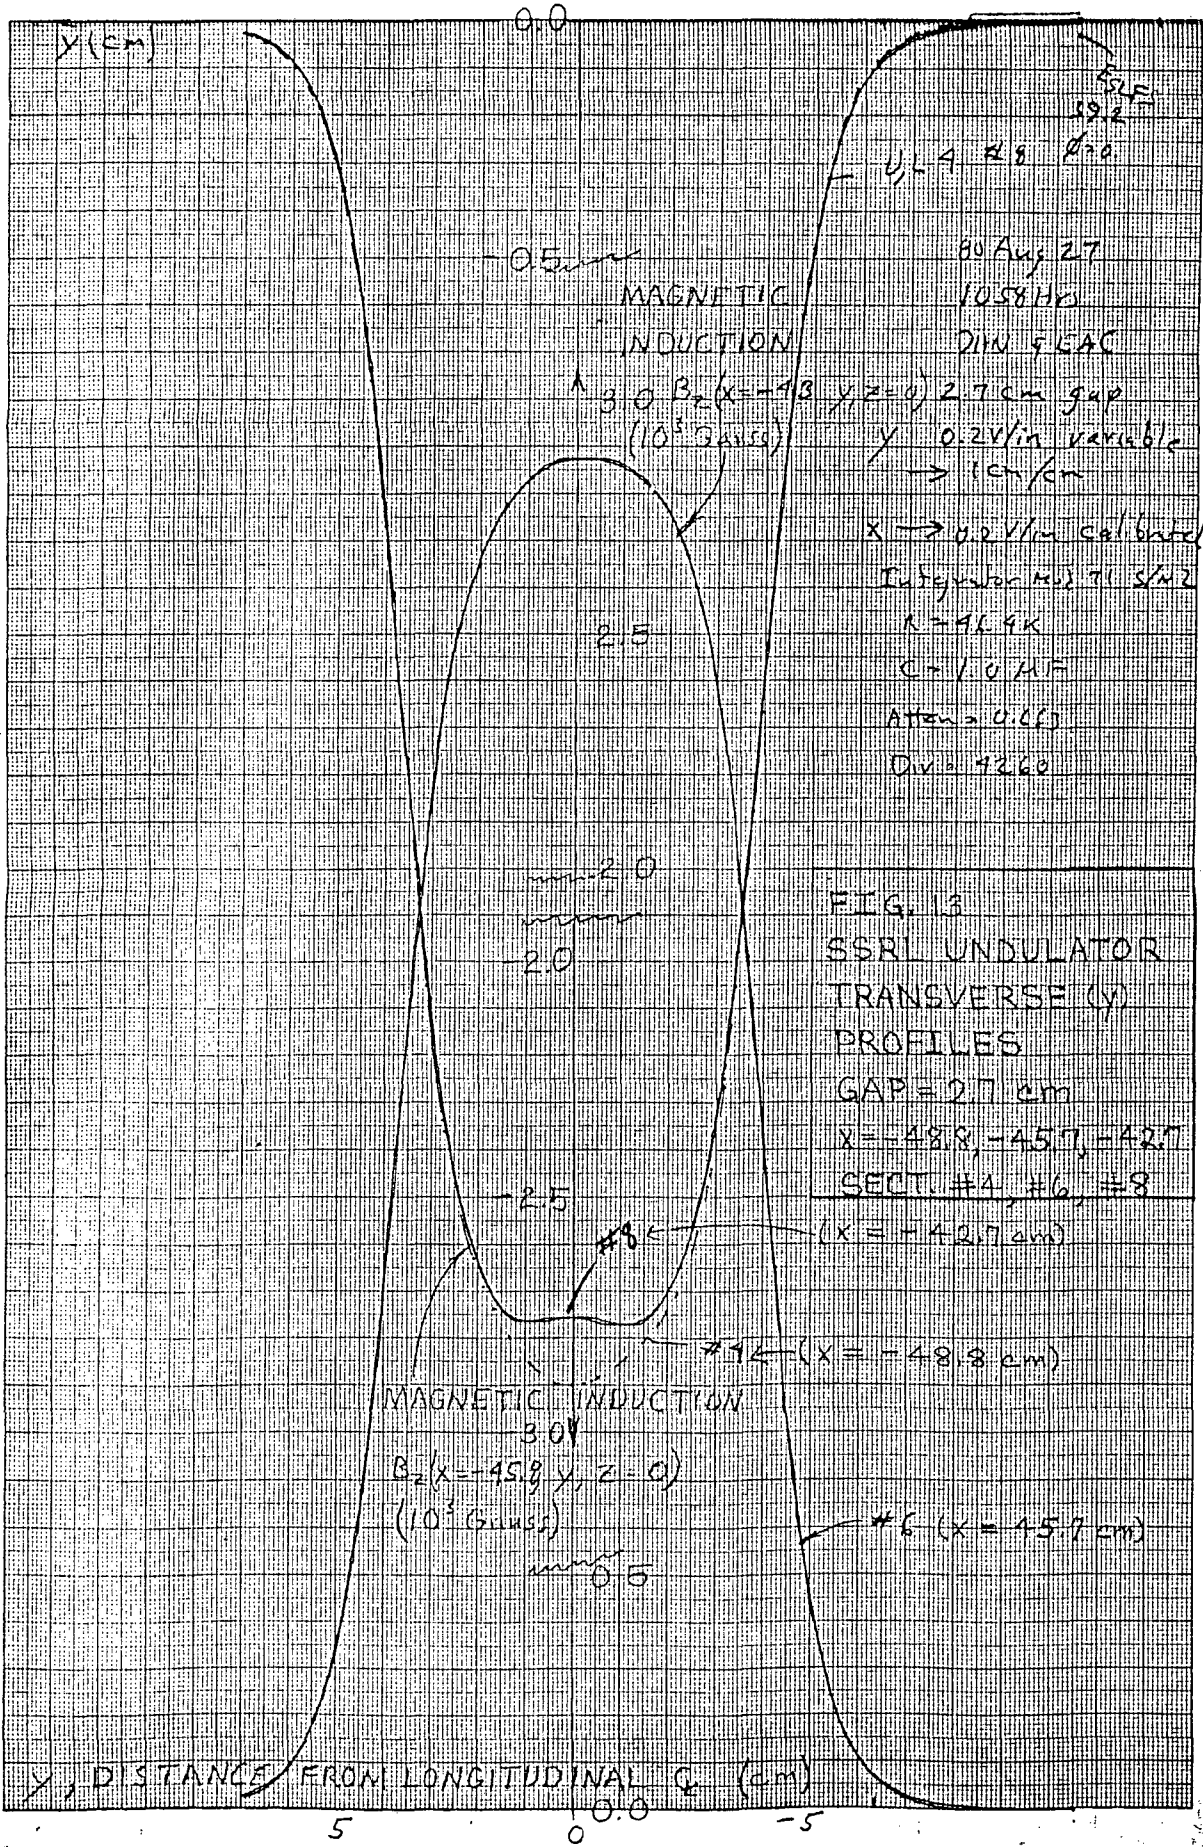 0.0
y (cm)
59.2
#8
-0.5
80 Aug 27
MAGNETIC
1058 Hrs
INDUCTION
3.0 Bz(x=-43 y, z=0) 2.7 cm gap
(10³ Gauss)
y 0.2V/in variable
→ 1cm/cm
x → 0.2V/in calibrated
Integrator
2.5
C = 1.0 MF
Div = 4260
2.0
FIG. 13
-2.0
SSRL UNDULATOR
TRANSVERSE (y)
PROFILES
GAP = 2.7 cm
X = -48.8, -45.7, -42.7
SECT. #4, #6, #8
-2.5
#8 (x = -42.7 cm)
#4 (x = -48.8 cm)
MAGNETIC INDUCTION
-3.0
Bz(x=-45.8 y, z=0)
(10³ Gauss)
#6 (x = 45.7 cm)
0.5
y, DISTANCE FROM LONGITUDINAL ℄ (cm)
0.0
5 0 -5